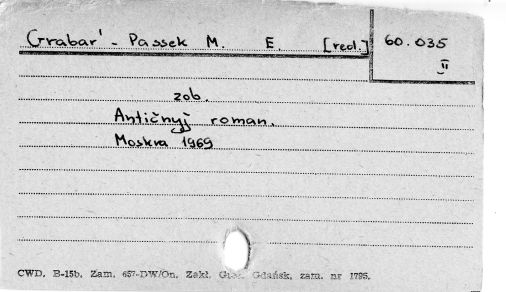 Grabar' - Passek M. E. [red.] 60.035
II
zob.
Antičnyj roman.
Moskva 1969
CWD. B-15b. Zam. 657-DW/On. Zakł. Graf. Gdańsk, zam. nr 1795.